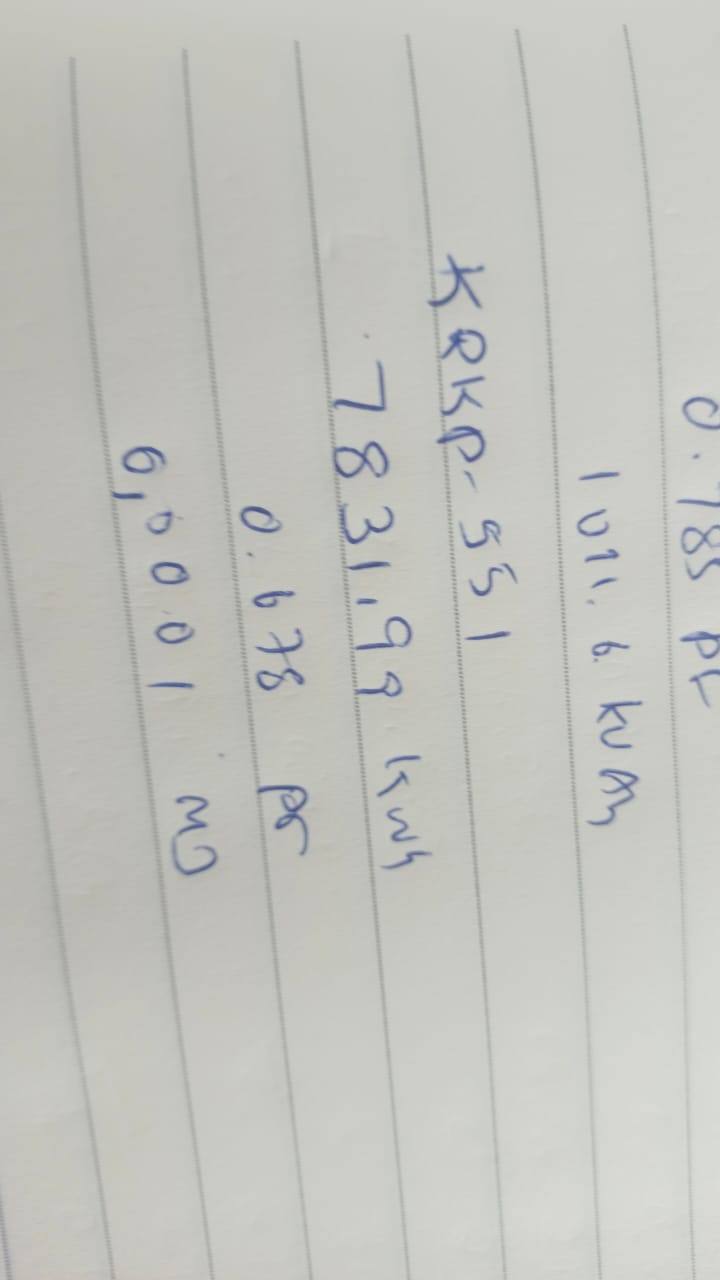 0.785 PF
1011.6 kVAh
KRKP-551
7831.99 kwh
0.678 PF
0.001 MD